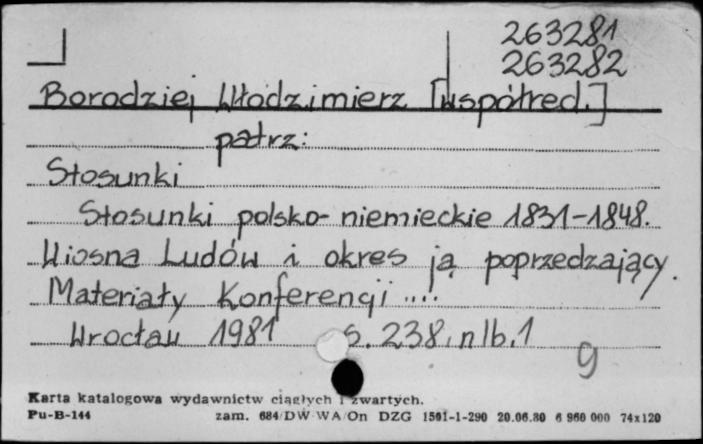 263281
263282
Borodziej Włodzimierz [współred.]
patrz:
Stosunki
Stosunki polsko-niemieckie 1831-1848.
Wiosna Ludów i okres ją poprzedzający.
Materiały Konferencji ....
Wrocław 1981 s. 238, nlb. 1
g
Karta katalogowa wydawnictw ciągłych i zwartych.
Pu-B-144 zam. 684/DW WA/On DZG 1501-1-290 20.06.80 6 960 000 74x120